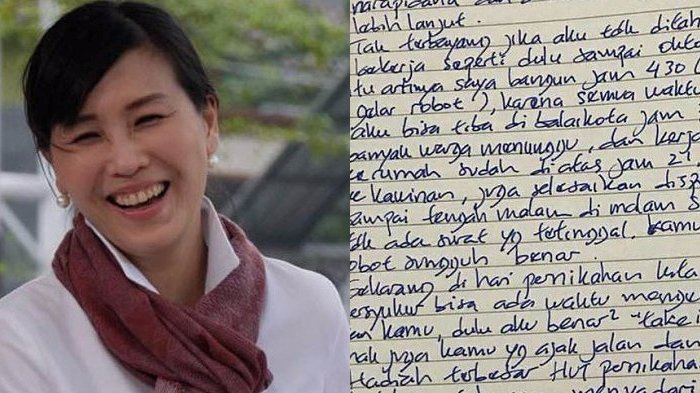 lebih lanjut.
Tak terbayang jika aku tdk ditah
bekerja seperti dulu sampai okto
tu artinya saya bangun jam 4 30 (
gelar robot), karena semua waktu
aku bisa tiba di balaikota jam
banyak warga menunggu, dan kerja
ke rumah sudah diatas jam 21
e kawinan, juga selesaikan disp
sampai tengah malam di malam S
tdk ada surat yg tertinggal. kamu
obot sungguh benar.
Sekarang di hari pernikahan kita
ersyukur bisa ada waktu mengu
an kamu, dulu aku benar² "take i
nak juga kamu yg ajak jalan dan
Hadiah terbesar HUT pernikaha
menyadari